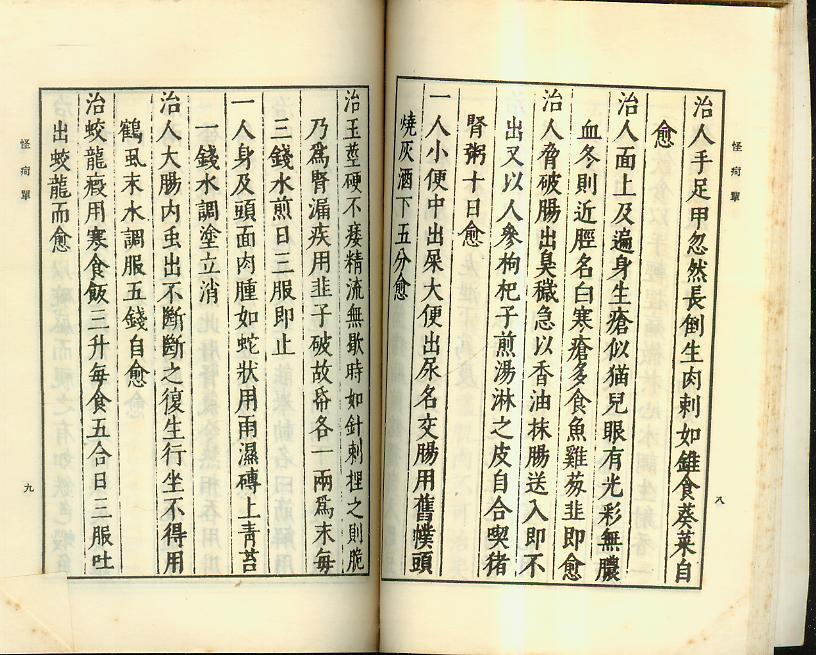 怪疴單
治人手足甲忽然長倒生肉刺如錐食葵菜自
愈
治人面上及遍身生瘡似猫兒眼有光彩無膿
血冬則近脛名曰寒瘡多食魚雞葱韭即愈
治人脅破腸出臭穢急以香油抹腸送入即不
出又以人參枸杞子煎湯淋之皮自合喫猪
腎粥十日愈
一人小便中出屎大便出尿名交腸用舊幞頭
燒灰酒下五分愈
八
治玉莖硬不痿精流無歇時如針刺捏之則脆
乃爲腎漏疾用韭子破故帋各一兩爲末每
三錢水煎日三服即止
一人身及頭面肉腫如蛇狀用雨濕磚上青苔
一錢水調塗立消
治人大腸内虫出不斷斷之復生行坐不得用
鶴虱末水調服五錢自愈
治蛟龍癥用寒食飯三升每食五合日三服吐
出蛟龍而愈
怪疴單
九